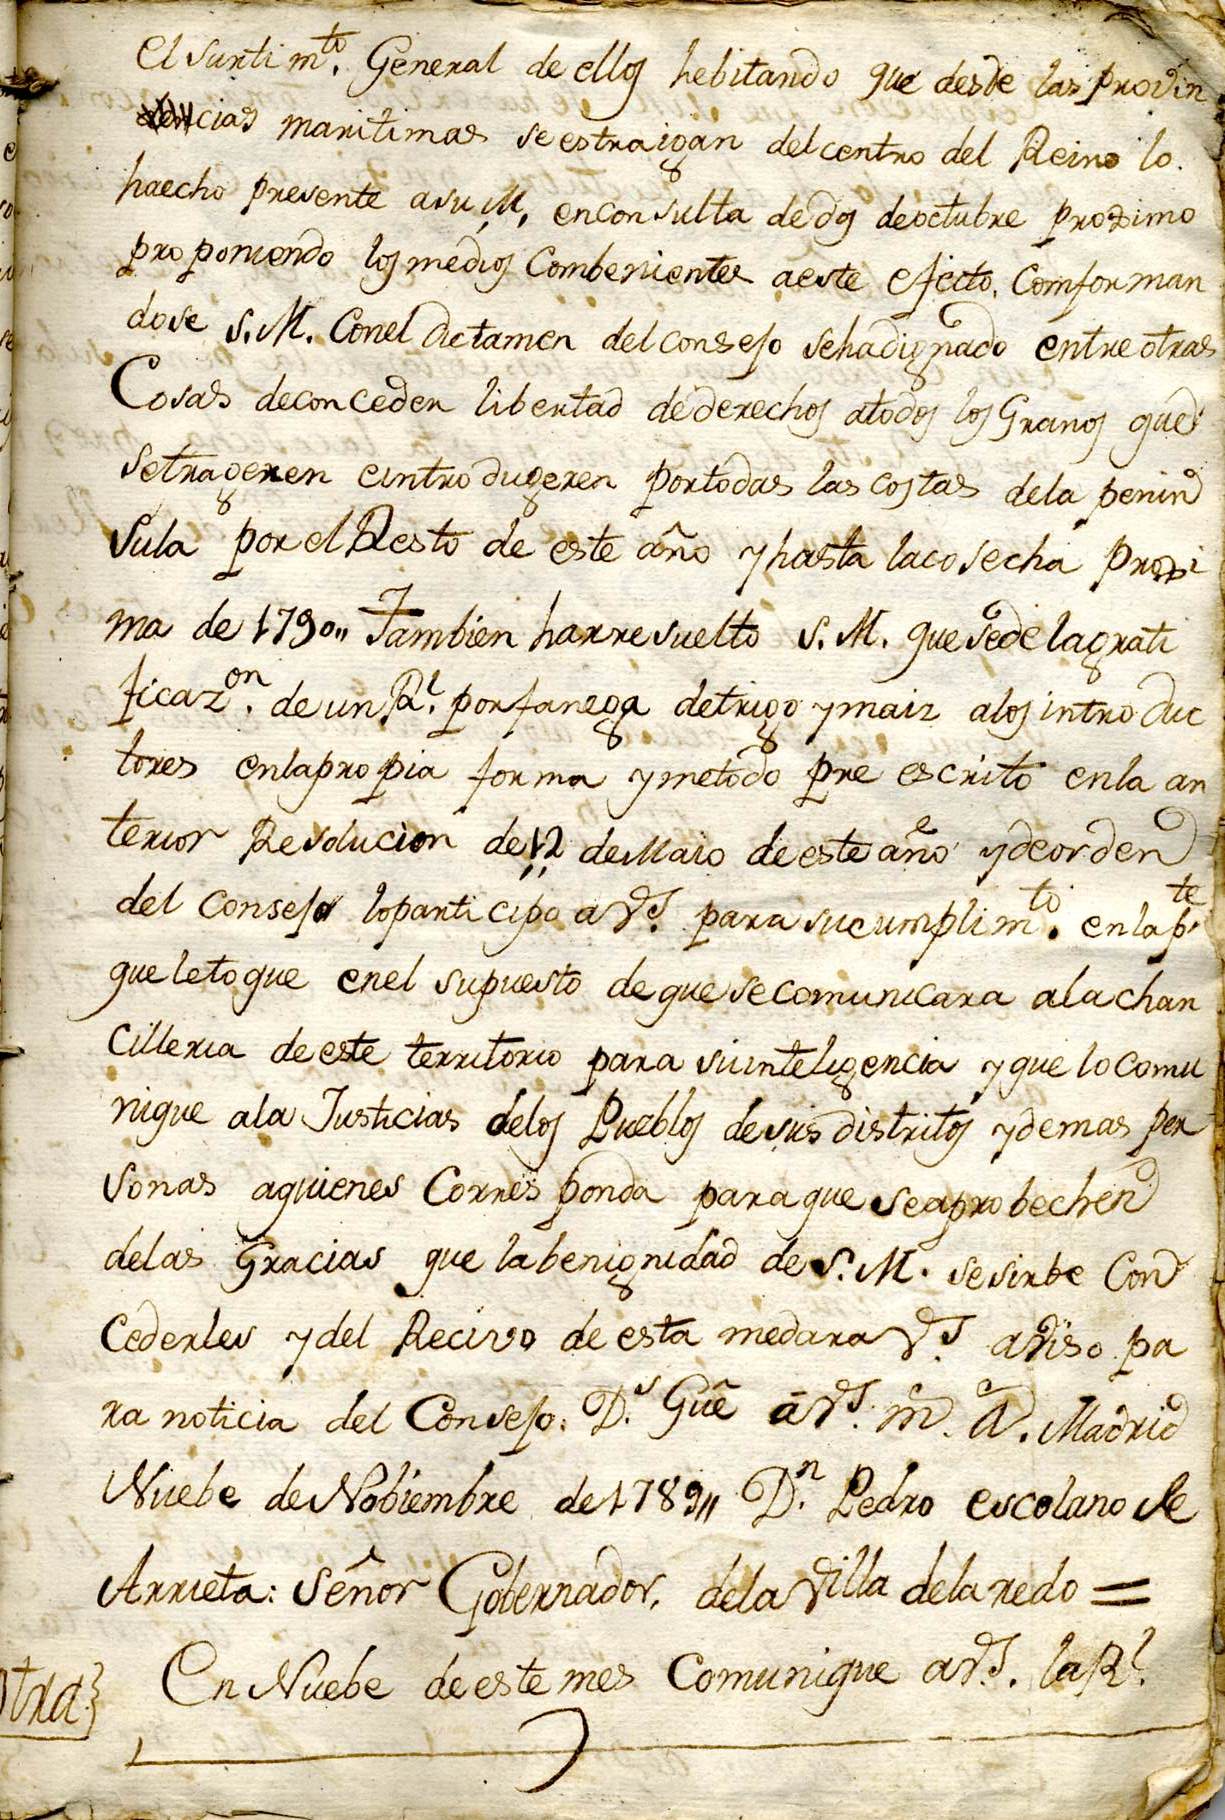 el surtimto. General de ellos hebitando que desde las provin
cias maritimas se estraigan del centro del Reino lo
haecho presente a su M. en consulta de dos de octubre proximo
proponiendo los medios combenientes a este efecto. Comforman
dose S. M. Con el dictamen del consejo se ha dignado entre otras
Cosas de conceder libertad de derechos a todos los Granos que
se trageren e introdugeren por todas las costas de la penin
sula por el Resto de este año y hasta la cosecha proxi
ma de 1790,, Tambien ha rresuelto S. M. que se de la grati
ficazon. de un Rl. por fanega de trigo y maiz a los introduc
tores en la propia forma y metodo pre escrito en la an
terior Resolucion de 12 de Maio de este año y de orden
del Consejo lo participo a VS. para su cumplimto. en la pte.
que le toque en el supuesto de que se comunicara a la chan
cilleria de este territorio para su inteligencia y que lo comu
nique a la Justicias de los Pueblos de sus distritos y demas per
sonas a quienes Corresponda para que se aprobechen
de las Gracias que la benignidad de S. M. se sirbe Con
cederles y del Recivo de esta me dara VS. aviso pa
ra noticia del Consejo. Ds. Gue a VS. m. a. Madrid
Nuebe de Nobiembre de 1789,, Dn. Pedro escolano de
Arrieta: Señor Gobernador, de la Villa de laredo =
Otra} En Nuebe de este mes Comunique a VS. la Rl.